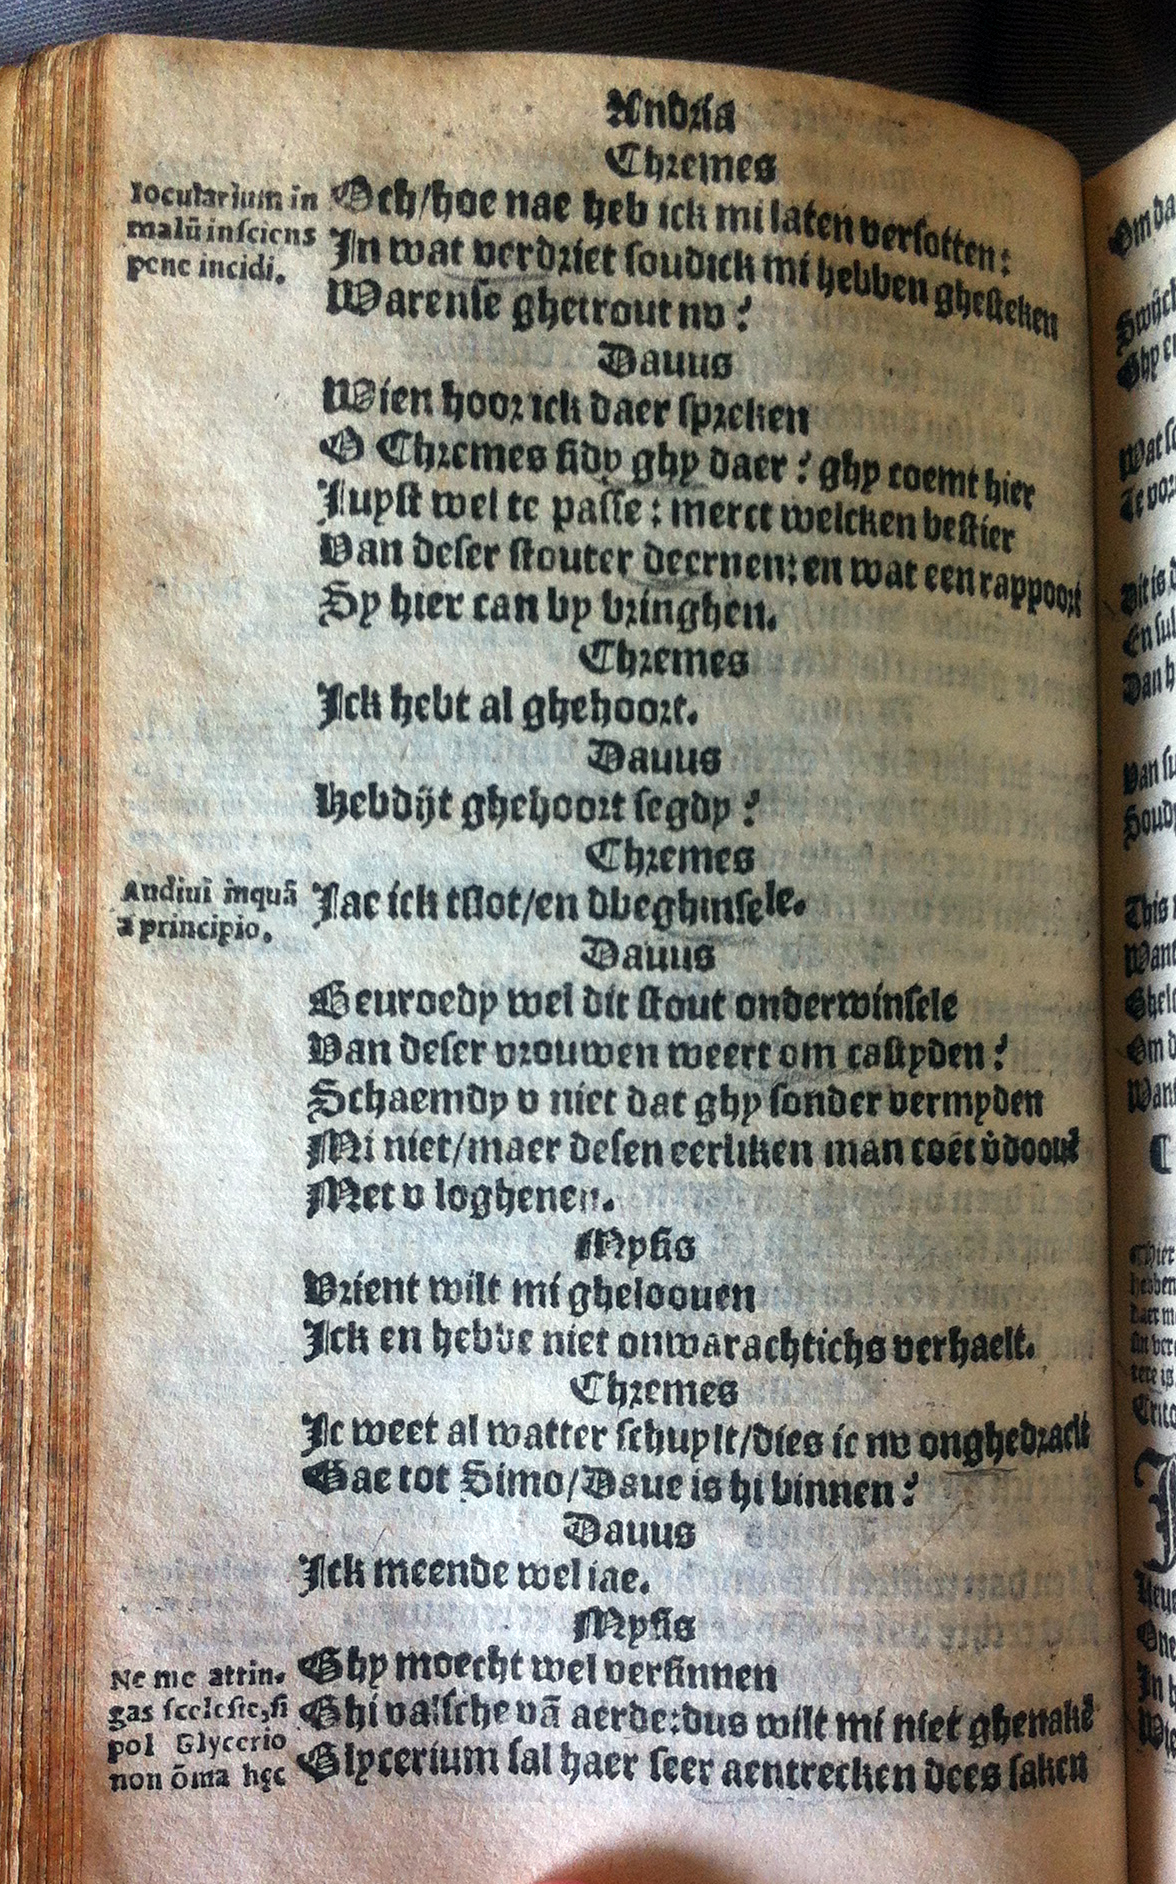 Andria
Chremes
Iocularium in
malū insciens
pene incidi.
Och/hoe nae heb ick mi laten versotten:
In wat verdriet soudick mi hebben ghesteken
Warense ghetrout nv?
Dauus
Wien hoor ick daer spreken
O Chremes sidy ghy daer? ghy coemt hier
Iuyst wel te passe: merct welcken bestier
Van deser stouter deernen: en wat een rappoort
Sy hier can by bringhen.
Chremes
Ick hebt al ghehoort.
Dauus
Hebdijt ghehoort segdy?
Chremes
Andiui inquā
a principio.
Iae ick tslot/en dbeghinsele.
Dauus
Beuroedy wel dit stout onderwinsele
Van deser vrouwen weert om castyden?
Schaemdy v niet dat ghy sonder vermyden
Mi niet/maer desen eerliken man coēt v̄doouē
Met v loghenen.
Mysis
Vrient wilt mi gheloouen
Ick en hebbe niet onwarachtichs verhaelt.
Chremes
Ic weet al watter schuylt/dies ic nv onghedraelt
Gae tot Simo/Daue is hi binnen?
Dauus
Ick meende wel iae.
Mysis
Ne me attin-
gas sceleste, si
pol Glycerio
non ōma hęc
Ghy moecht wel versinnen
Ghi valsche vā aerde: dus wilt mi niet ghenakē
Glycerium sal haer seer aentrecken dees saken